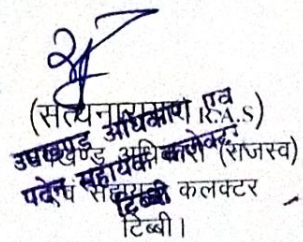 (सत्यनारायण R.A.S)
उपखण्ड अधिकारी एवं
उपखण्ड अधिकारी (राजस्व)
पदेन सहायक कलेक्टर
एवं सहायक कलक्टर
टिब्बी
टिब्बी।